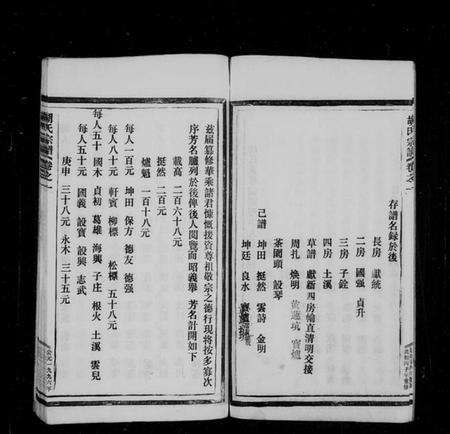 胡氏宗譜 卷之一
存譜名録於後
長房 獻統
二房 國强 貞升
三房 子銓
四房 土溪
草譜 獻新四房輪直清明交接
周扎 煥明
茶園頭 設琴
己譜
坤田 挺然 雲詩 金明
坤廷 良水
茲届纂修華乘諸君慷慨援資尊祖敬宗之德行現將按多寡次
序芳名臚列於後俾後人閲覽而昭義舉 芳名計開如下
載高 二百六十八元
挺然 二百元
爐魁 一百十八元
每人一百元 坤田 保方 德友 德强
每人八十元 軒賓 柳標 松標 五十八元
每人五十 國木 貞初 葛雄 海興 子庄 根火 土溪 雲兒
國義 設寶 設興 志武
庚申 三十八元 永木 三十五元
胡氏宗譜 卷之一
公元一九九六年